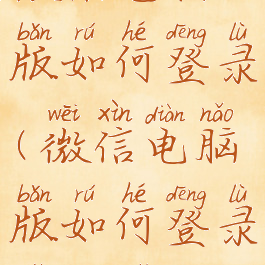 bǎn rú hé dēng lù
版如何登录
wēi xìn diàn nǎo
(微信电脑
bǎn rú hé dēng lù
版如何登录